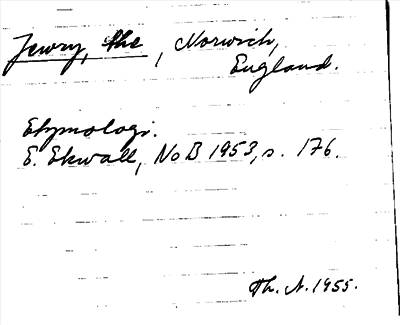 Jewry, the, Norwich,
England.
Etymologi.
E. Ekwall, NoB 1953, s. 176.
Th. A. 1955.